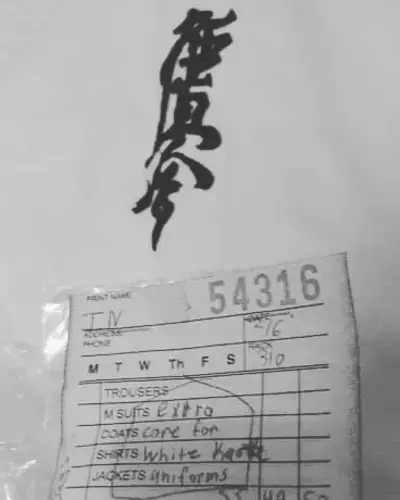 極真会
PRINT NAME
54316
IN
ADDRESS
PHONE
DATE
276
RACK
310
M T W Th F S
TROUSERS
M SUITS Extra
COATS care for
SHIRTS White Karate
JACKETS Uniforms